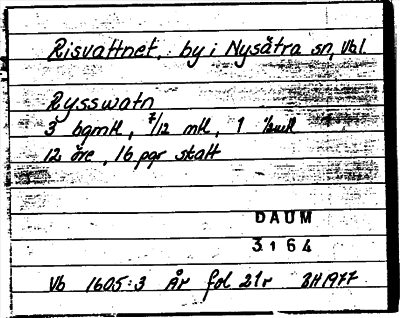 Risvattnet, by i Nysätra sn, Vbl.
Rysswatn
3 bgmtl, 7/12 mtl, 1
12 öre, 16 pgr skatt
DAUM
3164
Vb 1605:3 År fol 21r BH1977